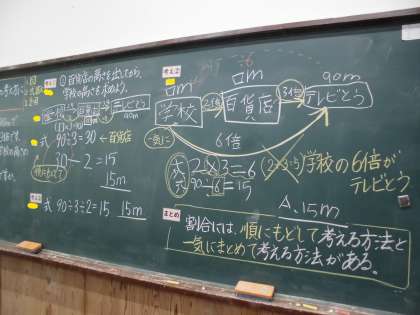 考え①
①百貨店の高さを出してから、
学校の高さを求めよう。
テレビとう
式 90÷3=30 ←百貨店
30÷2=15
15m
順にもどして
式 90÷3÷2=15 15m
考え②
□m □m 90m
学校 2倍 百貨店 3倍 テレビとう
一気に 6倍
式 2×3=6
式 90÷6=15
(2+3=5)
学校の6倍が
テレビとう
A.15m
まとめ
割合には、順にもどして考える方法と
一気にまとめて考える方法がある。